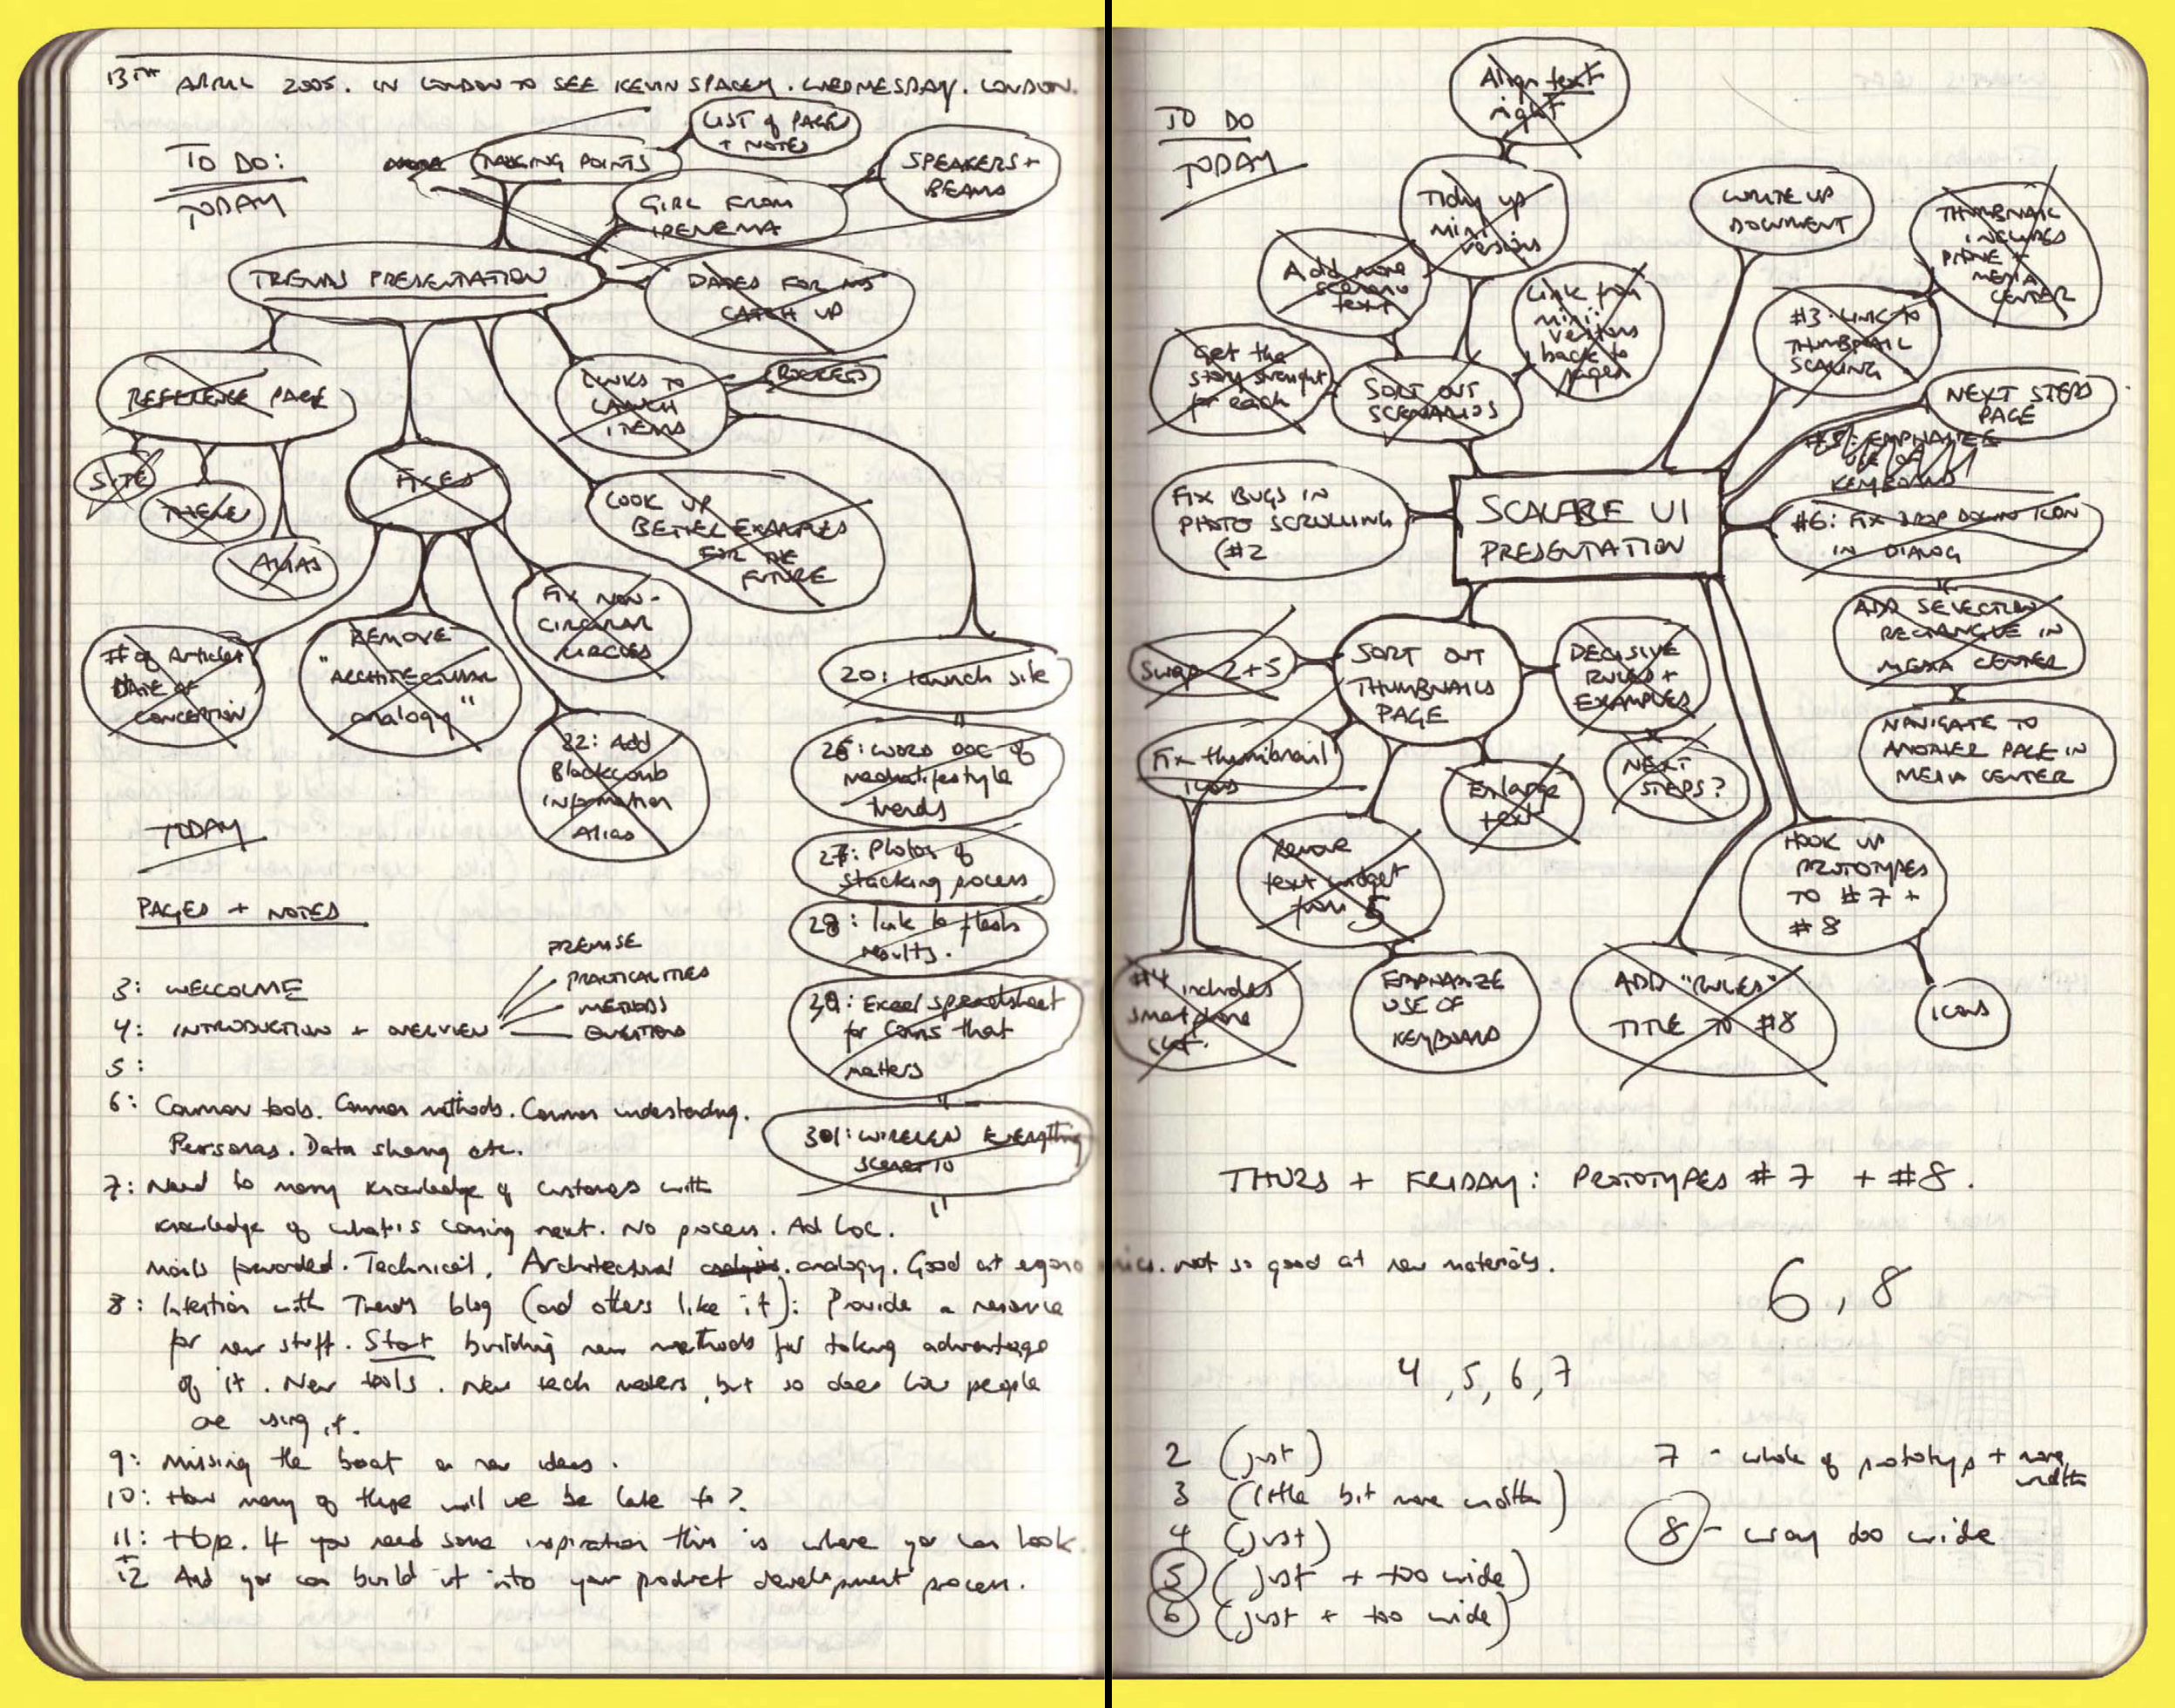 13TH APRIL 2005. IN LONDON TO SEE KEVIN SPACEY. WEDNESDAY. LONDON.
TO DO:
TODAY
TALKING POINTS
LIST of PAGES
+ NOTES
GIRL FROM
IPENEMA
SPEAKERS +
BEAMS
TRENDS PRESENTATION
DATES FOR
CATCH UP
REFERENCE PAGE
SITE
THERE
ALIAS
FIXES
LINKS TO
LAUNCH
ITEMS
ROCKETS
LOOK UP
BETTER EXAMPLES
FOR THE
FUTURE
# of Articles
DATE OF
CONCEPTION
REMOVE
"ARCHITECTURAL
analogy"
FIX NON-
CIRCULAR
CIRCLES
22: Add
Blackcomb
information
Alias
20: launch site
26: WORD DOC of
trends
27: Photos of
stacking process
28: link to flash
results.
29: Excel spreadsheet
for Coins that
matters
301: WIRELESS EVERYTHING
scenario
TODAY
PAGES + NOTES
3: WELCOME
4: INTRODUCTION + OVERVIEW
PREMISE
PRACTICALITIES
METHODS
QUESTIONS
5:
6: Common tools. Common methods. Common understanding.
Personas. Data sharing etc.
7: Need to marry knowledge of customers with
knowledge of what is coming next. No process. Ad hoc.
mails forwarded. Technical. Architectural analogy. Good at ergonomics. Not so good at new materials.
8: Intention with Trends blog (and others like it): Provide a resource
for new stuff. Start building new methods for taking advantage
of it. New tools. New tech matters, but so does how people
are using it.
9: Missing the boat on new ideas.
10: How many of these will we be late to?
11: Hope. If you need some inspiration this is where you can look.
+
12 And you can build it into your product development process.
TO DO
TODAY
Align text
right
Tidy up
mini
versions
Add more
scenario
text
Get the
story straight
for each
SORT OUT
SCENARIOS
Link from
mini
versions
back to
pages
WRITE UP
DOCUMENT
THUMBNAIL
INCLUDES
PHONE +
MEDIA
CENTER
#3: LINK TO
THUMBNAIL
SCALING
NEXT STEPS
PAGE
#5: EMPHASIZE
USE OF
KEYBOARD
FIX BUGS IN
PHOTO SCROLLING
(#2
SCALABLE UI
PRESENTATION
#6: FIX DROP DOWN ICON
IN DIALOG
ADD SELECTION
RECTANGLE IN
MEDIA CENTER
NAVIGATE TO
ANOTHER PAGE IN
MEDIA CENTER
Swap 2+5
SORT OUT
THUMBNAILS
PAGE
DECISIVE
RULES +
EXAMPLES
NEXT
STEPS?
Fix thumbnail
icons
Enlarge
text
Remove
text widget
from 5
#4 includes
smart phone
EMPHASIZE
USE OF
KEYBOARD
ADD "RULES"
TITLE TO #8
HOOK UP
PROTOTYPES
TO #7 +
#8
icons
THURS + FRIDAY: PROTOTYPES #7 + #8.
6, 8
4, 5, 6, 7
2 (just)
3 (little bit more width)
4 (just)
5 (just + too wide)
6 (just + too wide)
7 - whole of prototype + more
width
8 - way too wide